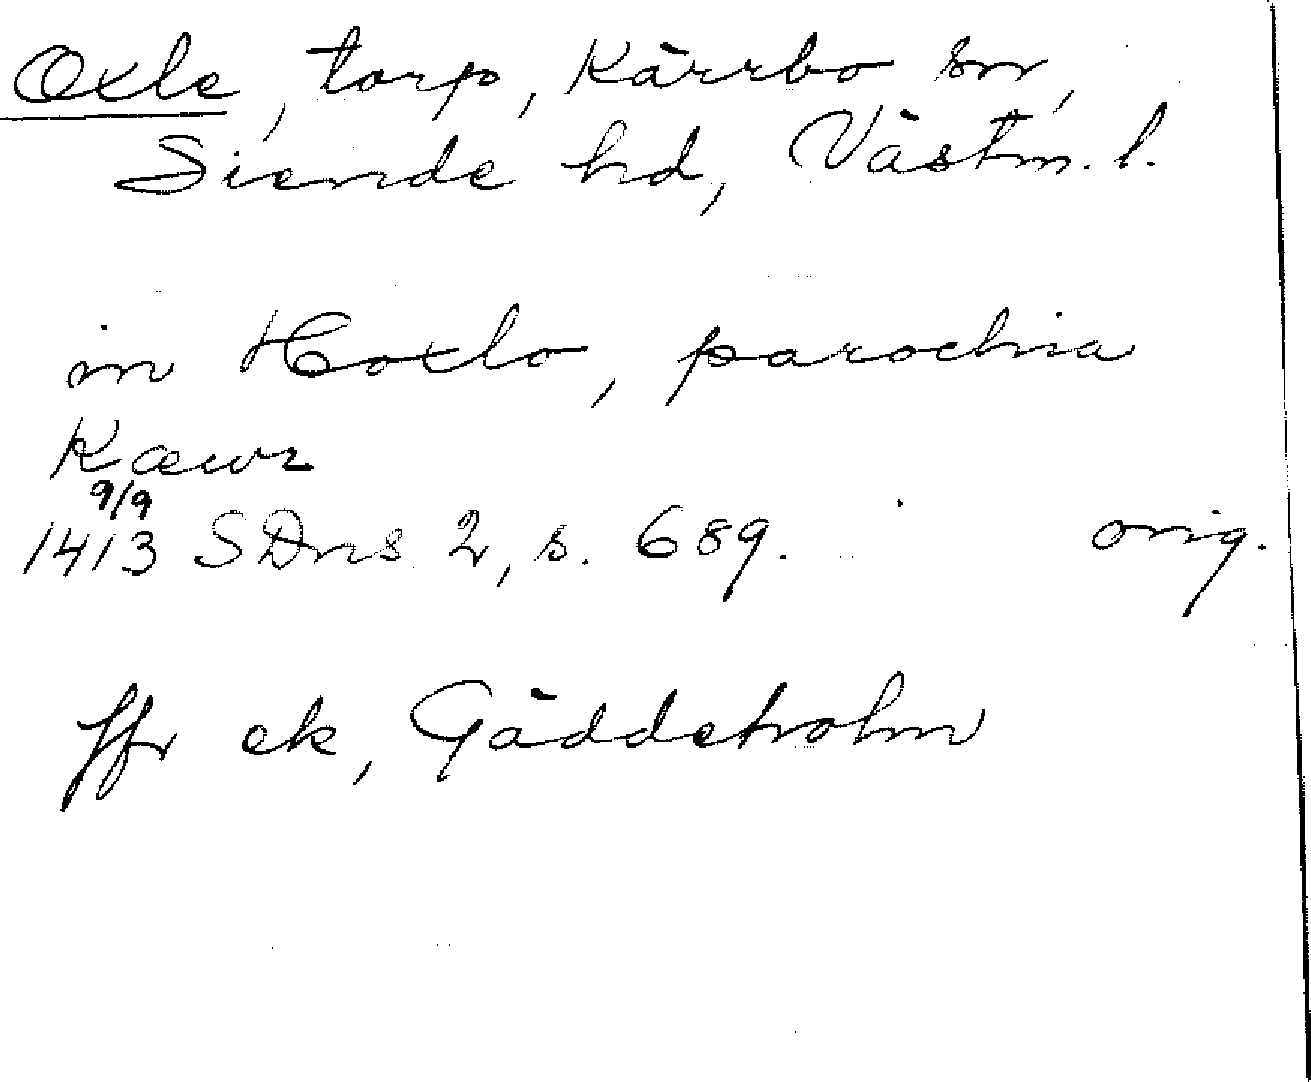 Oxle, torp, Kärrbo sn,
Siende hd, Västm. l.
in Hoxlo, parochia
Kæwr
9/9
1413 SDns 2, s. 689. orig.
Jfr ek, Gäddeholm